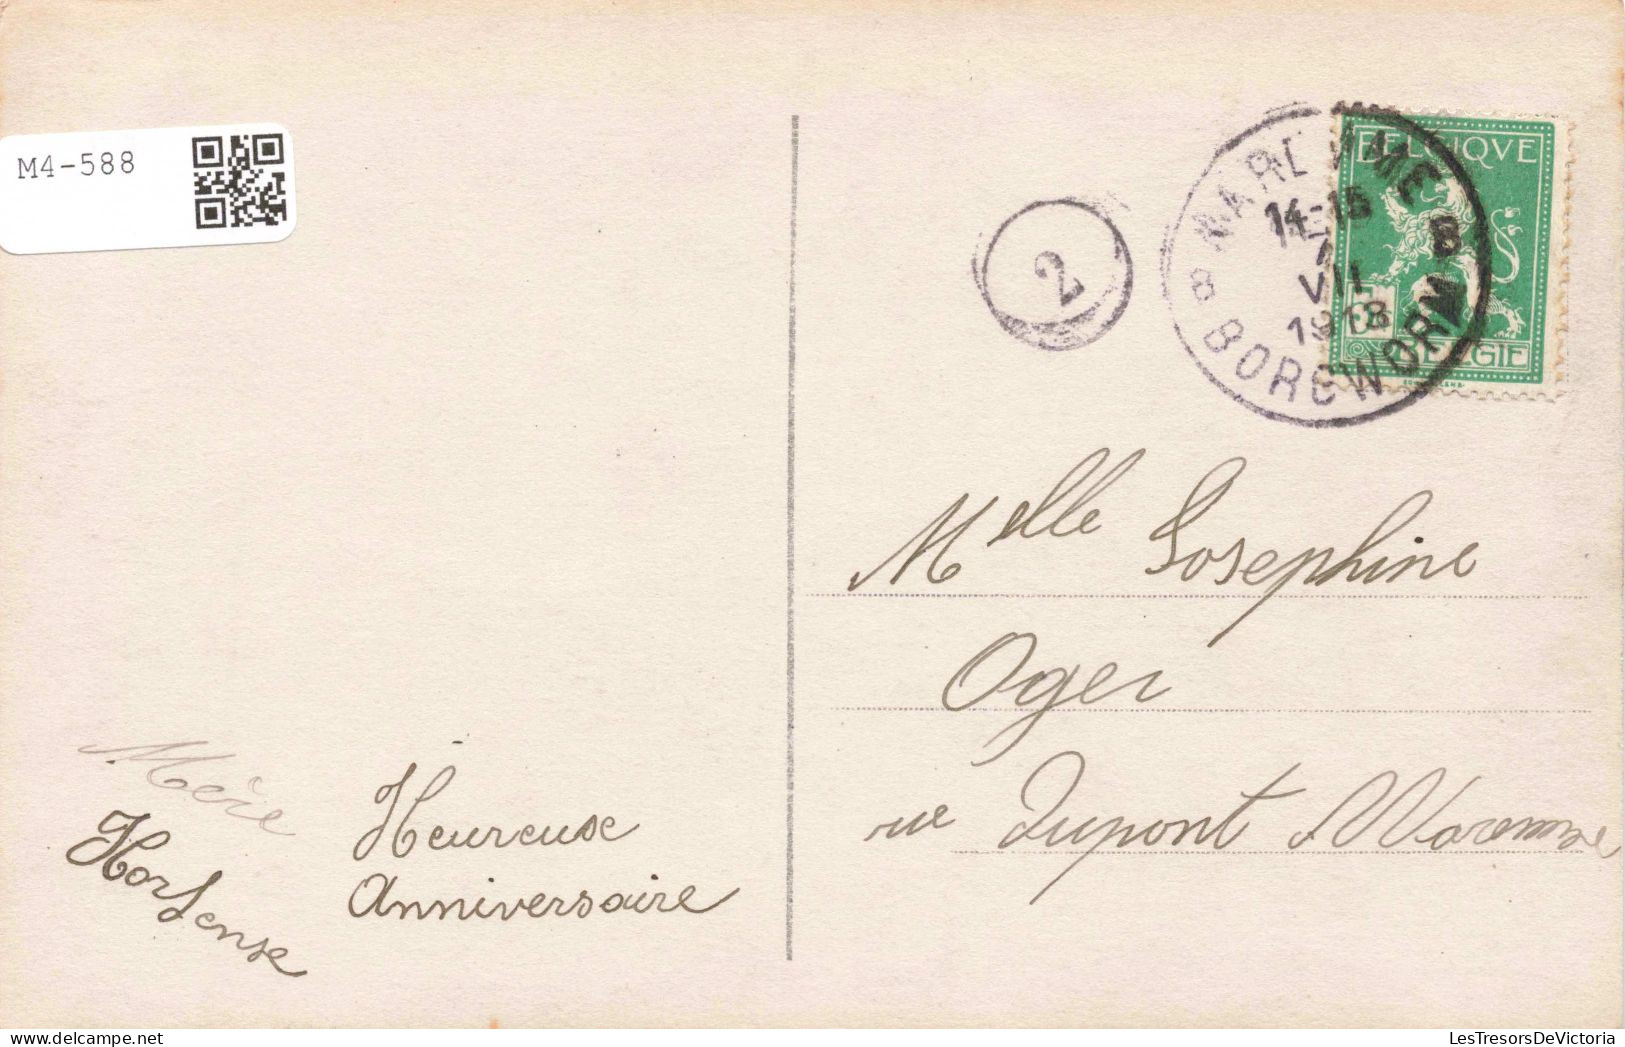 M4-588
BELGIQVE
WAREMME
14-15
VII
1913
B B
BORGWORM
BELGIE
2
Melle Josephine
Oger
rue Dupont Waremme
Mère
Hortense
Heureuse
Anniversaire
LesTresorsDeVictoria